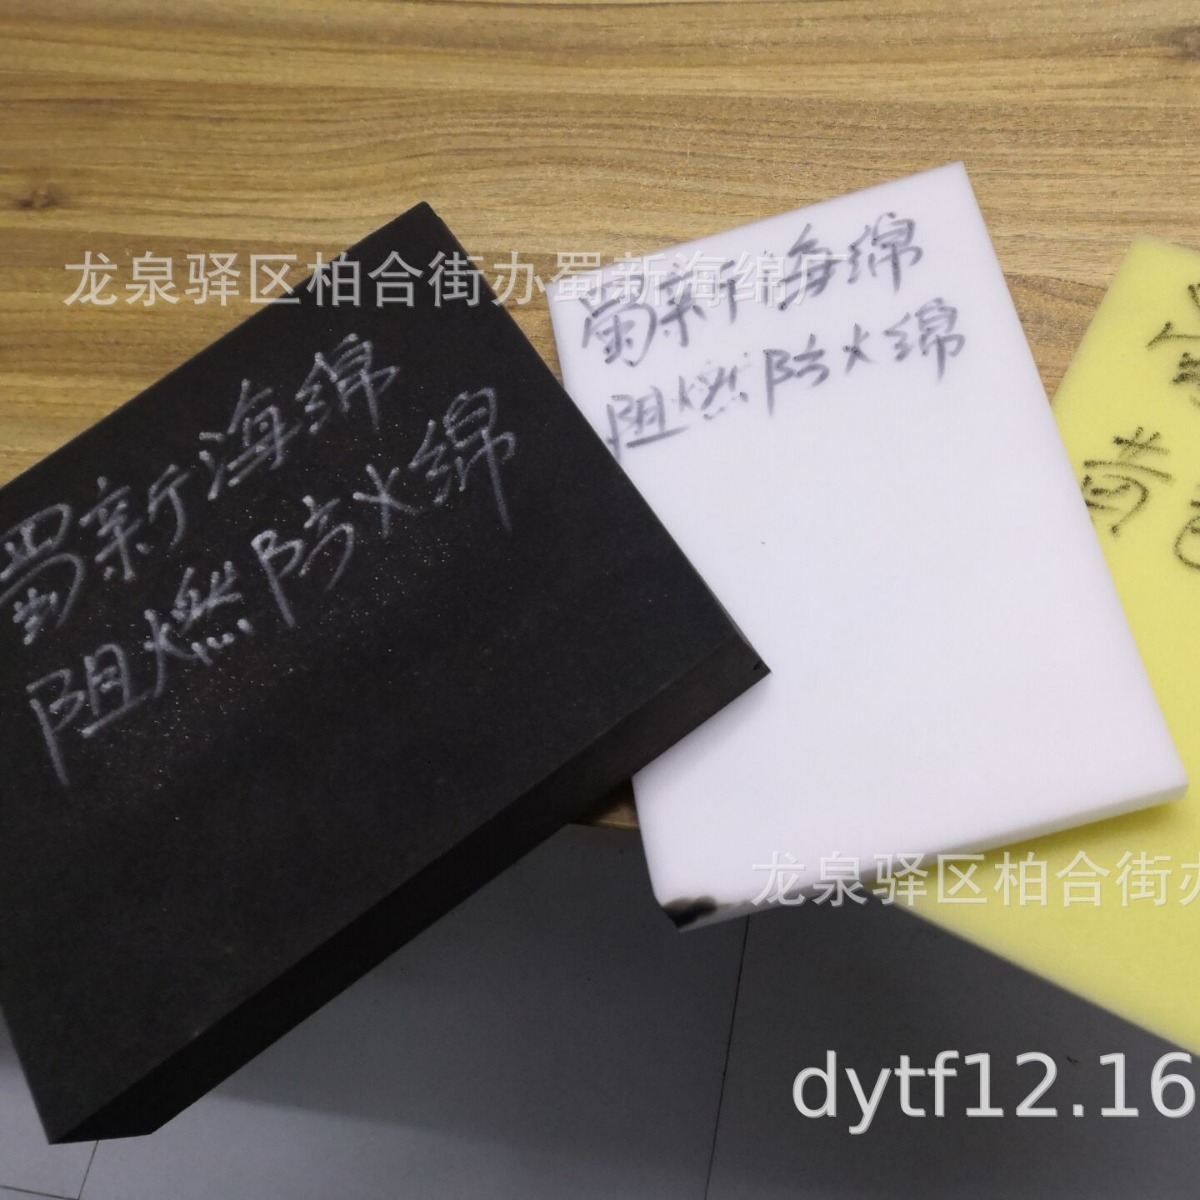 龙泉驿区柏合街办蜀新海绵厂
蜀新海绵
阻燃防火绵
蜀新海绵
阻燃防火绵
蜀
黄
龙泉驿区柏合街办
dytf12.16